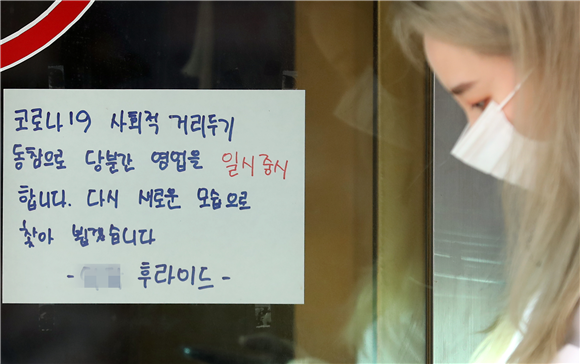 코로나19 사회적 거리두기
동참으로 당분간 영업을 일시중시
합니다. 다시 새로운 모습으로
찾아 뵙겠습니다
- 후라이드 -